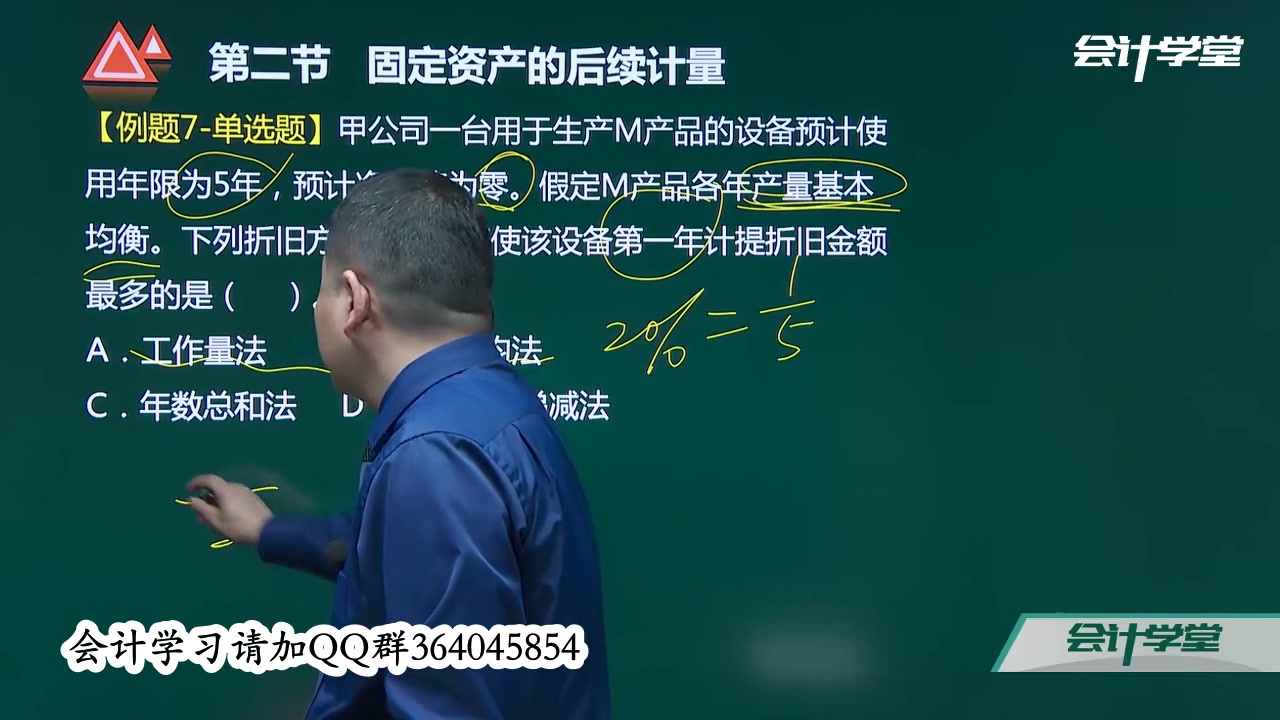 第二节 固定资产的后续计量
会计学堂
【例题7-单选题】甲公司一台用于生产M产品的设备预计使
用年限为5年，预计 为零。假定M产品各年产量基本
均衡。下列折旧 使该设备第一年计提折旧金额
最多的是（ ）
2%=1/5
A．工作量法 法
C．年数总和法 D 减法
会计学习请加QQ群364045854
会计学堂